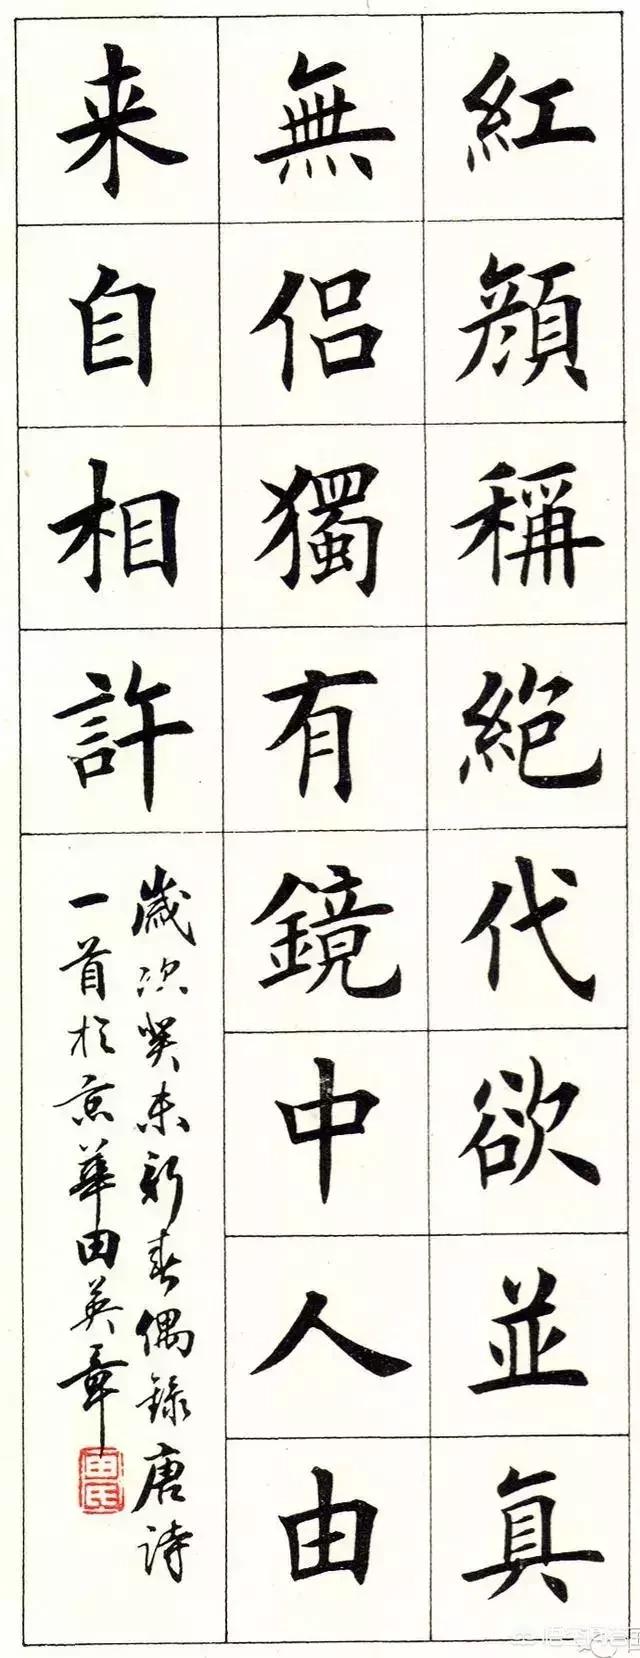 紅顔稱絶代欲並真
無侣獨有鏡中人由
来自相許
歲次癸未新春偶録唐詩
一首於京華田英章
田氏